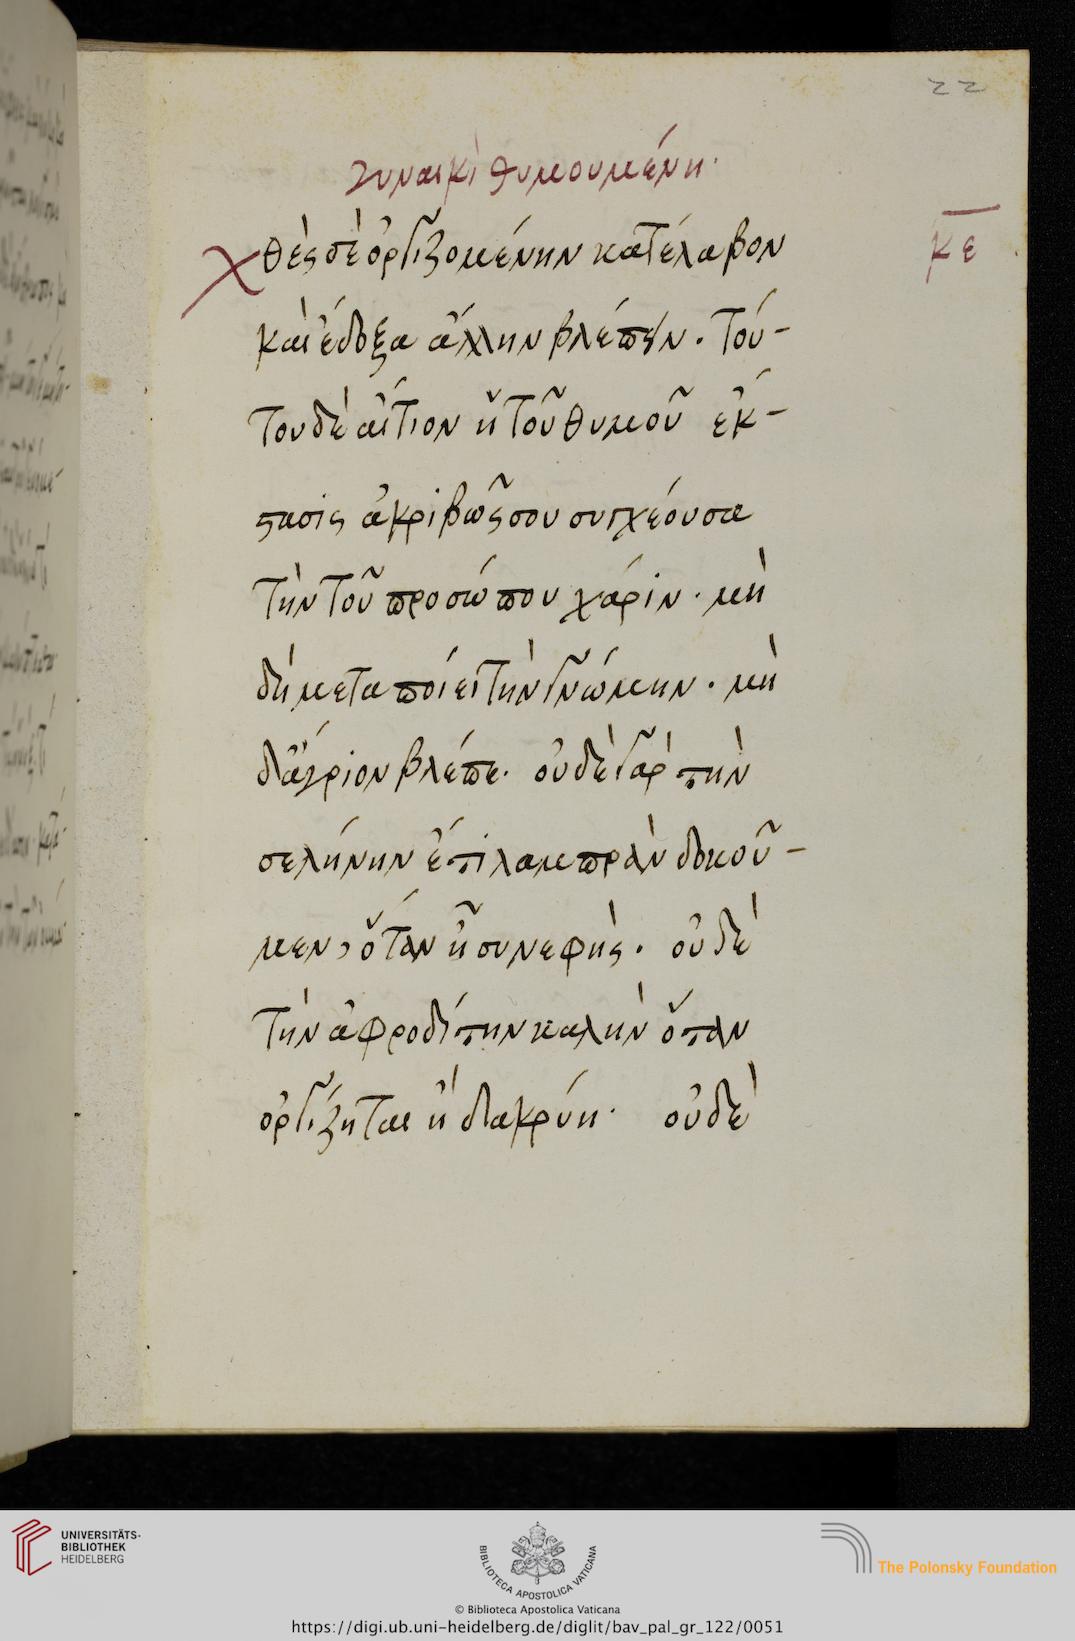 22
γυναικὶ θυμουμένη.
χθὲς σὲ ὀργιζομένην κατέλαβον
κε
καὶ ἔδοξα ἄλλην βλέπειν. τού-
του δὲ αἴτιον ἡ τοῦ θυμοῦ ἔκ-
στασις ἀκριβῶς σου συγχέουσα
τὴν τοῦ προσώπου χάριν. μὴ
δὴ μεταποίει τὴν γνώμην. μὴ
δ'ἄγριον βλέπε. οὐδὲ γὰρ τὴν
σελήνην ἔτι λαμπρὰν δοκοῦ-
μεν, ὅταν ᾖ συνεφής. οὐδὲ
τὴν ἀφροδίτην καλὴν ὅταν
ὀργίζηται ἢ δακρύη. οὐδὲ
UNIVERSITÄTS-
BIBLIOTHEK
HEIDELBERG
BIBLIOTECA APOSTOLICA VATICANA
The Polonsky Foundation
© Biblioteca Apostolica Vaticana
https://digi.ub.uni-heidelberg.de/diglit/bav_pal_gr_122/0051